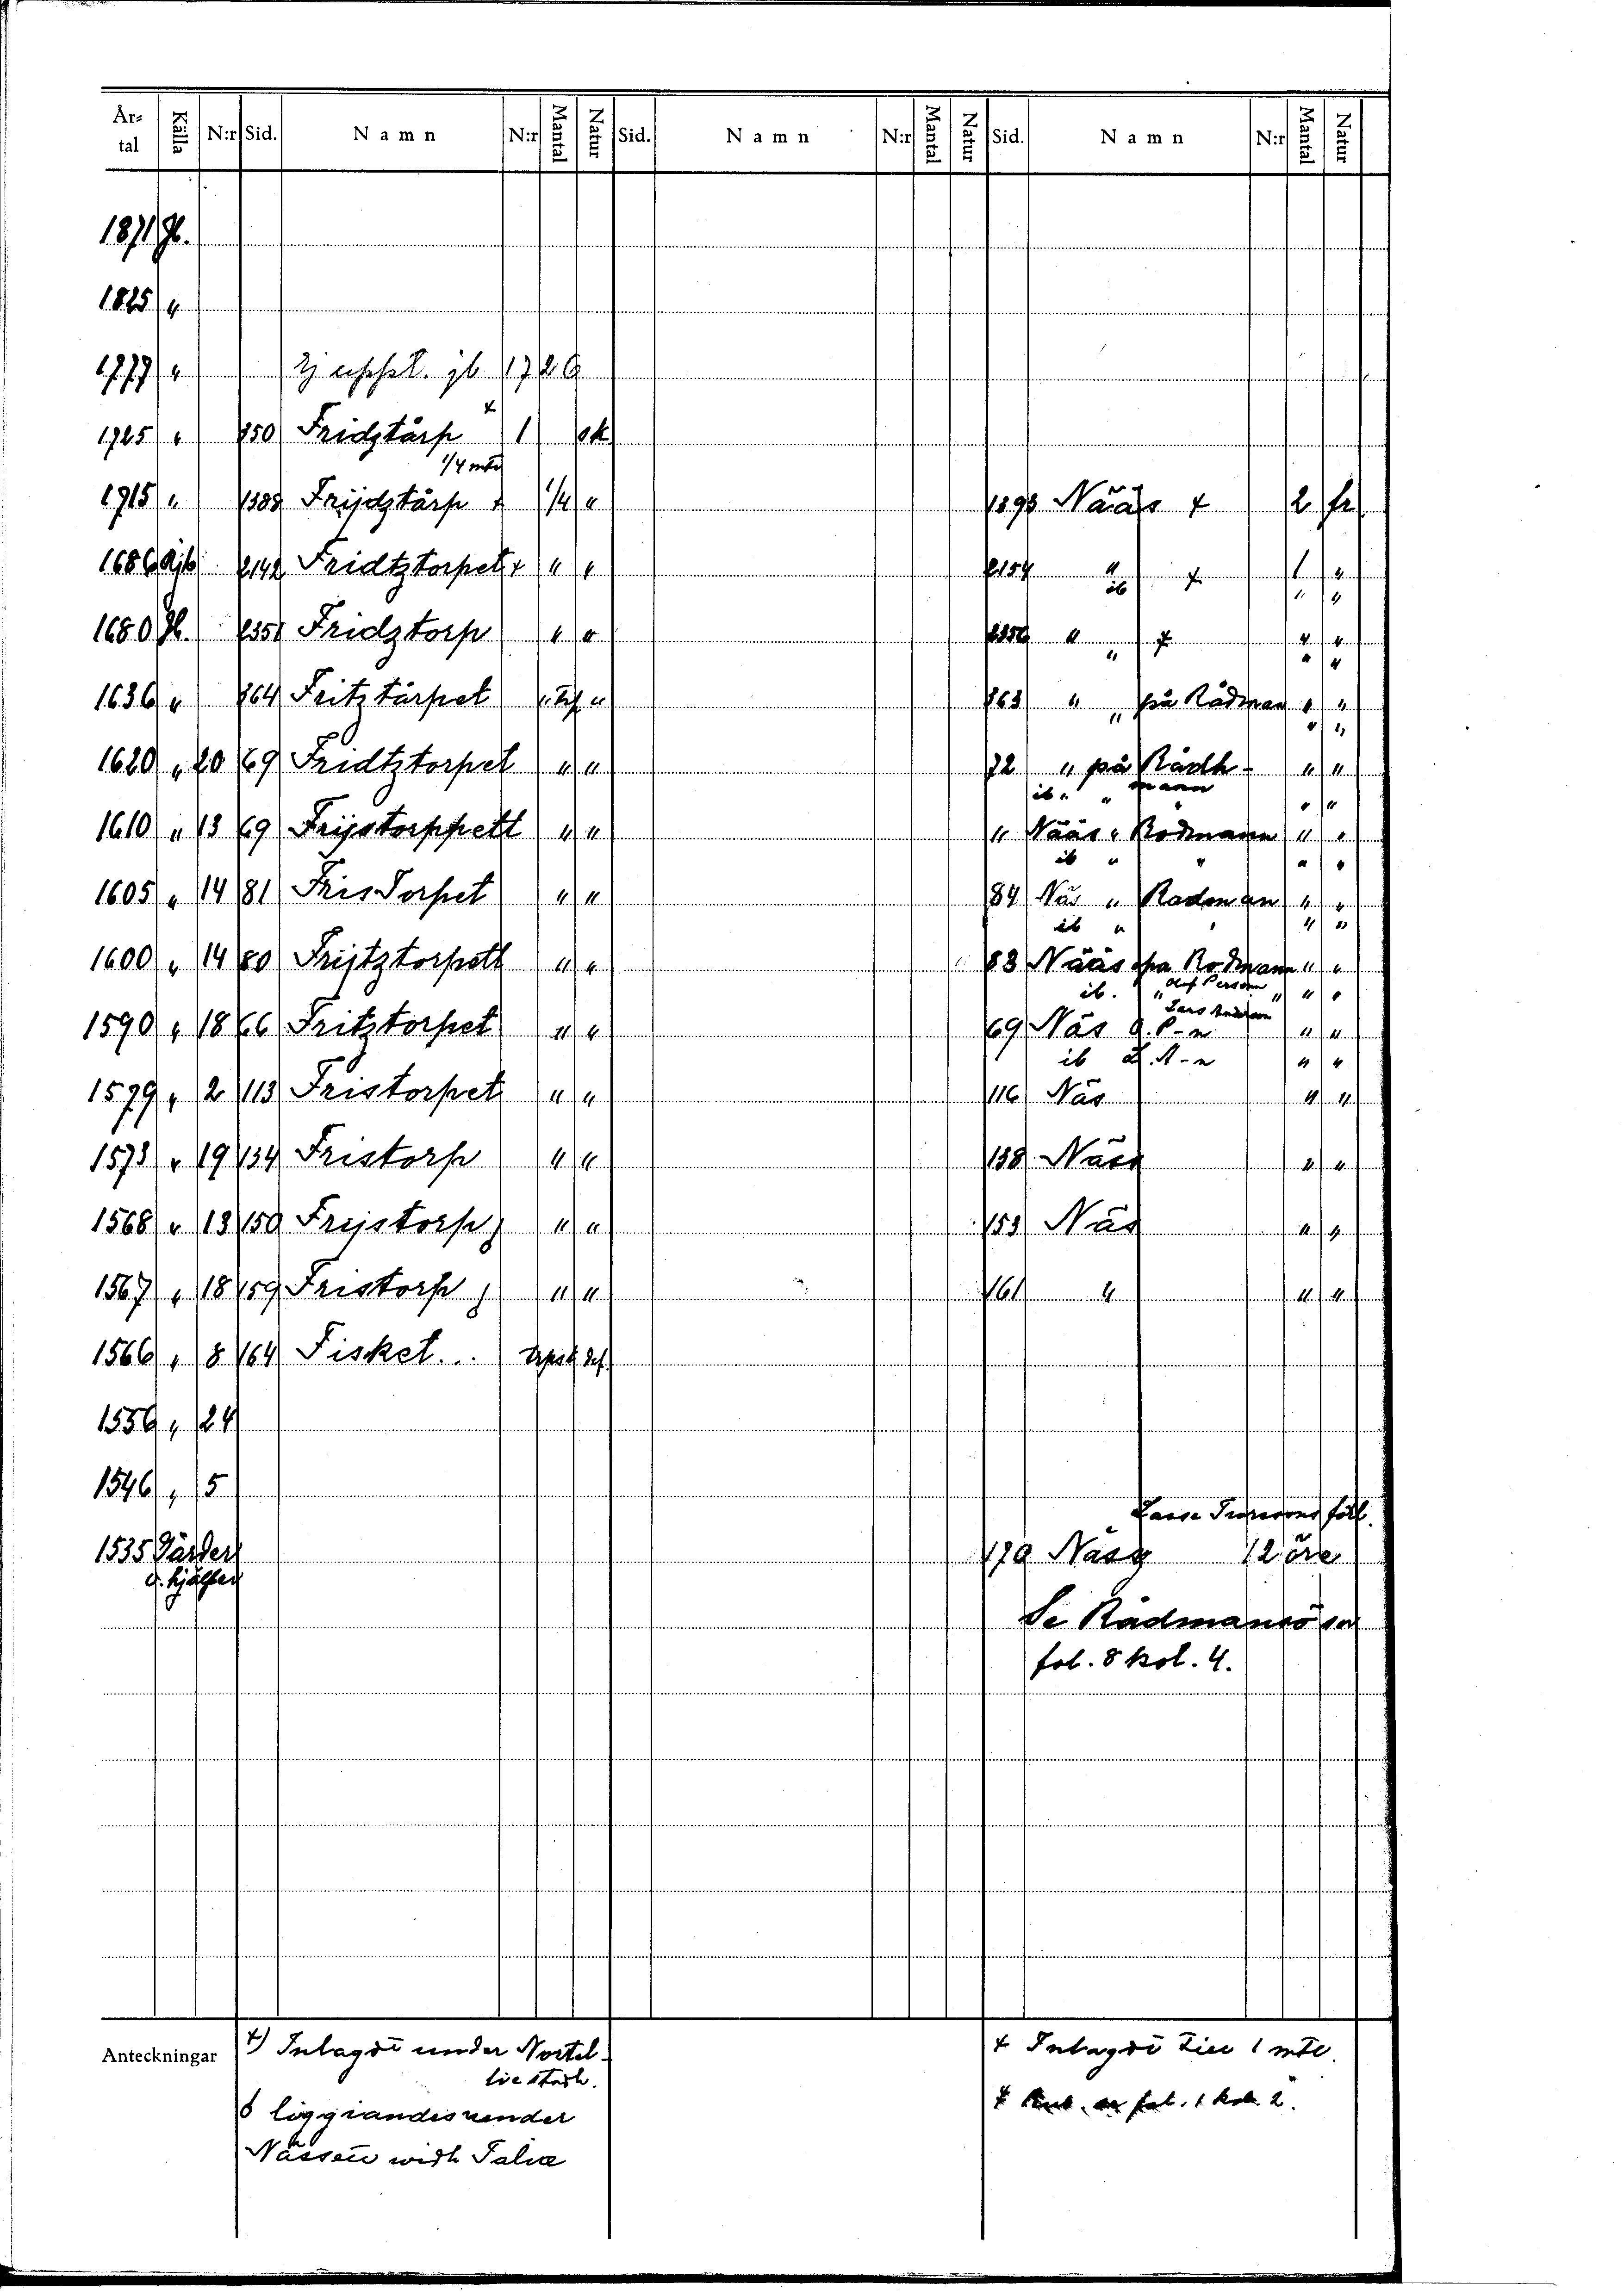 År-tal Källa N:r Sid. Namn N:r Mantal Natur Sid. Namn N:r Mantal Natur Sid. Namn N:r Mantal Natur
1871 Jb.
1825 "
1777 " Ej uppt. jb 1726
1725 " 850 Fridztårp + 1 sk
1/4 mtl
1715 " 1388 Frijdztårp + 1/4 " 1393 Nääs + 2 fr
1686 Ajb 2142 Fridtztorpet + " " 2154 " + 1 "
ib " "
1680 Jb. 2351 Fridztorp " " 2356 " + " "
" " "
1636 " 364 Fritztårpet " " 363 " på Rådman " "
" " "
1620 " 20 69 Fridtztorpet " " 72 " på Rådh- " "
ib " " mann " "
1610 " 13 69 Frijstorppett " " " Nääs " Rodmann " "
ib " " " "
1605 " 14 81 FrisTorpet " " 84 Näs " Radman " "
ib " " " "
1600 " 14 80 Frijtztorpett " " 83 Nääs pa Rodmann " "
ib. " Oluf Persson " " "
Lars Anderson
1590 " 18 66 Fritztorpet " " 69 Näs O. P-n " "
ib L. A-n " "
1579 " 2 113 Fristorpet " " 116 Näs " "
1573 " 19 134 Fristorp " " 138 Näss " "
1568 " 13 150 Frijstorp " " 153 Näs " "
1567 " 18 159 Fristorp " " 161 " " "
1566 " 8 164 Fisket...
1556 " 24
1546 " 5
1535 Gärder 170 Näsz 12 öre
o. hjälper
Se Rådmansö sn
fol. 8 kol. 4.
Anteckningar
+) Inlagdt under Nortel-
lie stadh.
+ Inlagdt till 1 mtl.
ô liggiandes under
fol. 1 kol. 2.
Nässett widh Talia